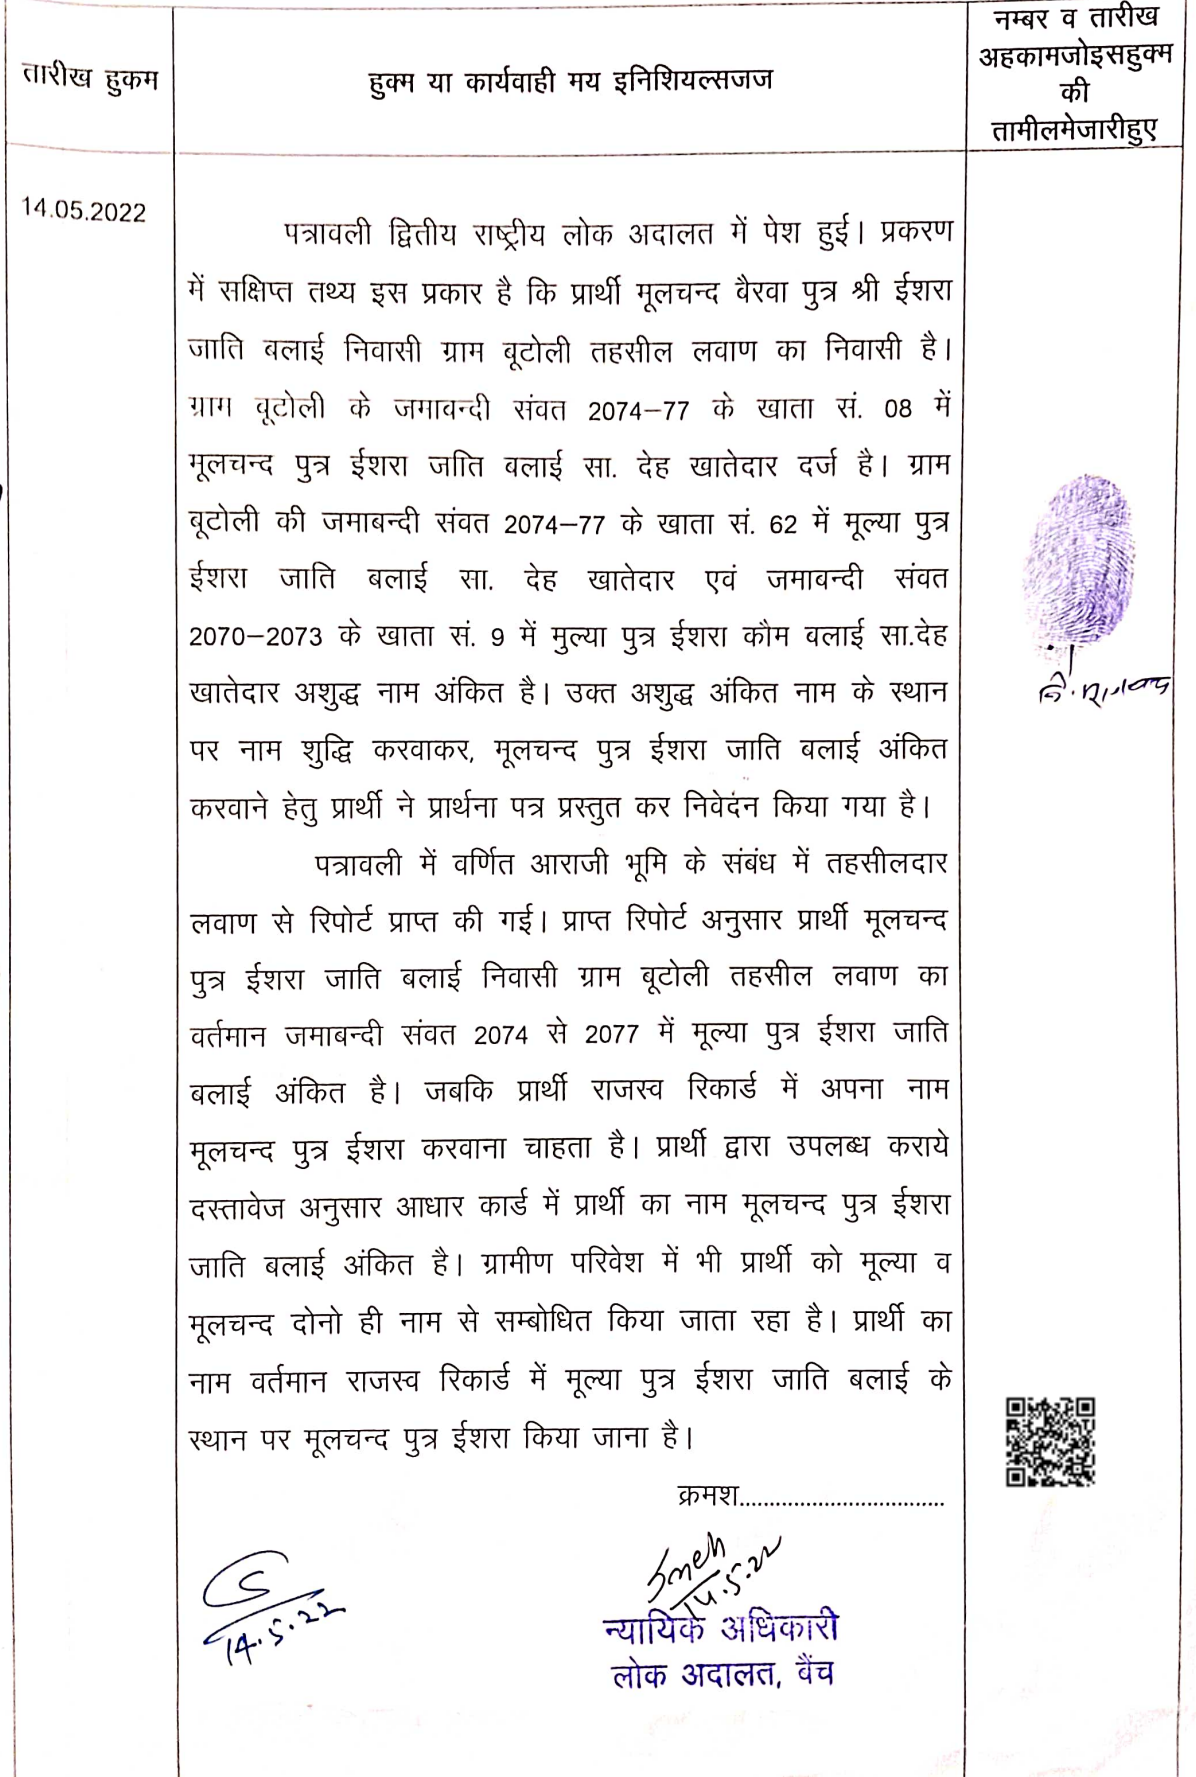 तारीख हुकम
हुक्म या कार्यवाही मय इनिशियल्सजज
नम्बर व तारीख
अहकामजोइसहुक्म
की
तामीलमेजारीहुए
14.05.2022
पत्रावली द्वितीय राष्ट्रीय लोक अदालत में पेश हुई। प्रकरण
में सक्षिप्त तथ्य इस प्रकार है कि प्रार्थी मूलचन्द बैरवा पुत्र श्री ईशरा
जाति बलाई निवासी ग्राम बूटोली तहसील लवाण का निवासी है।
ग्राम बूटोली के जमाबन्दी संवत 2074–77 के खाता सं. 08 में
मूलचन्द पुत्र ईशरा जाति बलाई सा. देह खातेदार दर्ज है। ग्राम
बूटोली की जमाबन्दी संवत 2074–77 के खाता सं. 62 में मूल्या पुत्र
ईशरा जाति बलाई सा. देह खातेदार एवं जमाबन्दी संवत
2070–2073 के खाता सं. 9 में मुल्या पुत्र ईशरा कौम बलाई सा.देह
खातेदार अशुद्ध नाम अंकित है। उक्त अशुद्ध अंकित नाम के स्थान
पर नाम शुद्धि करवाकर, मूलचन्द पुत्र ईशरा जाति बलाई अंकित
करवाने हेतु प्रार्थी ने प्रार्थना पत्र प्रस्तुत कर निवेदन किया गया है।
पत्रावली में वर्णित आराजी भूमि के संबंध में तहसीलदार
लवाण से रिपोर्ट प्राप्त की गई। प्राप्त रिपोर्ट अनुसार प्रार्थी मूलचन्द
पुत्र ईशरा जाति बलाई निवासी ग्राम बूटोली तहसील लवाण का
वर्तमान जमाबन्दी संवत 2074 से 2077 में मूल्या पुत्र ईशरा जाति
बलाई अंकित है। जबकि प्रार्थी राजस्व रिकार्ड में अपना नाम
मूलचन्द पुत्र ईशरा करवाना चाहता है। प्रार्थी द्वारा उपलब्ध कराये
दस्तावेज अनुसार आधार कार्ड में प्रार्थी का नाम मूलचन्द पुत्र ईशरा
जाति बलाई अंकित है। ग्रामीण परिवेश में भी प्रार्थी को मूल्या व
मूलचन्द दोनो ही नाम से सम्बोधित किया जाता रहा है। प्रार्थी का
नाम वर्तमान राजस्व रिकार्ड में मूल्या पुत्र ईशरा जाति बलाई के
स्थान पर मूलचन्द पुत्र ईशरा किया जाना है।
क्रमश...................................
14.5.22
14.5.22
न्यायिक अधिकारी
लोक अदालत, बैंच